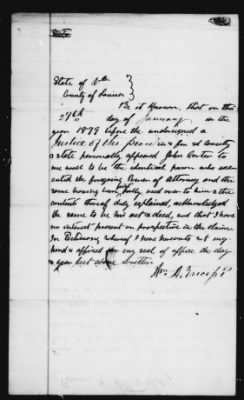 State of
County of
Be it Known, that on this
29th day of January in the
year 1879 before the undersigned a
Justice of the peace in & for sd County
& State personally appeared John
me well to be the identical person who exe-
cuted the foregoing Power of Attorney and the
same having been fully read over to him & the
contents thereof duly explained, acknowledged
the same to be his act & deed, and that I have
no interest present or prospective in the claim
In testimony whereof I have hereunto set my
hand & affixed my seal of office the day
& year last above written
Wm